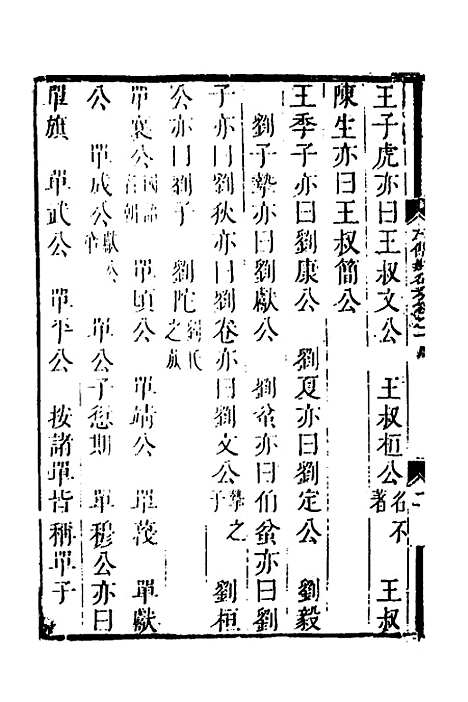 王子虎亦曰王叔文公　王叔桓公名不著　王叔
陳生亦曰王叔簡公
王季子亦曰劉康公　劉夏亦曰劉定公　劉毅
劉子摯亦曰劉獻公　劉蚠亦曰伯蚠亦曰劉
子亦曰劉狄亦曰劉卷亦曰劉文公摯之子　劉桓
公亦曰劉子　劉佗劉氏之族
單襄公國語名朝　單頃公　單靖公　單蔑　單獻
公　單成公獻公弟　單公子愆期　單穆公亦曰
單旗　單武公　單平公　按諸單皆稱單子